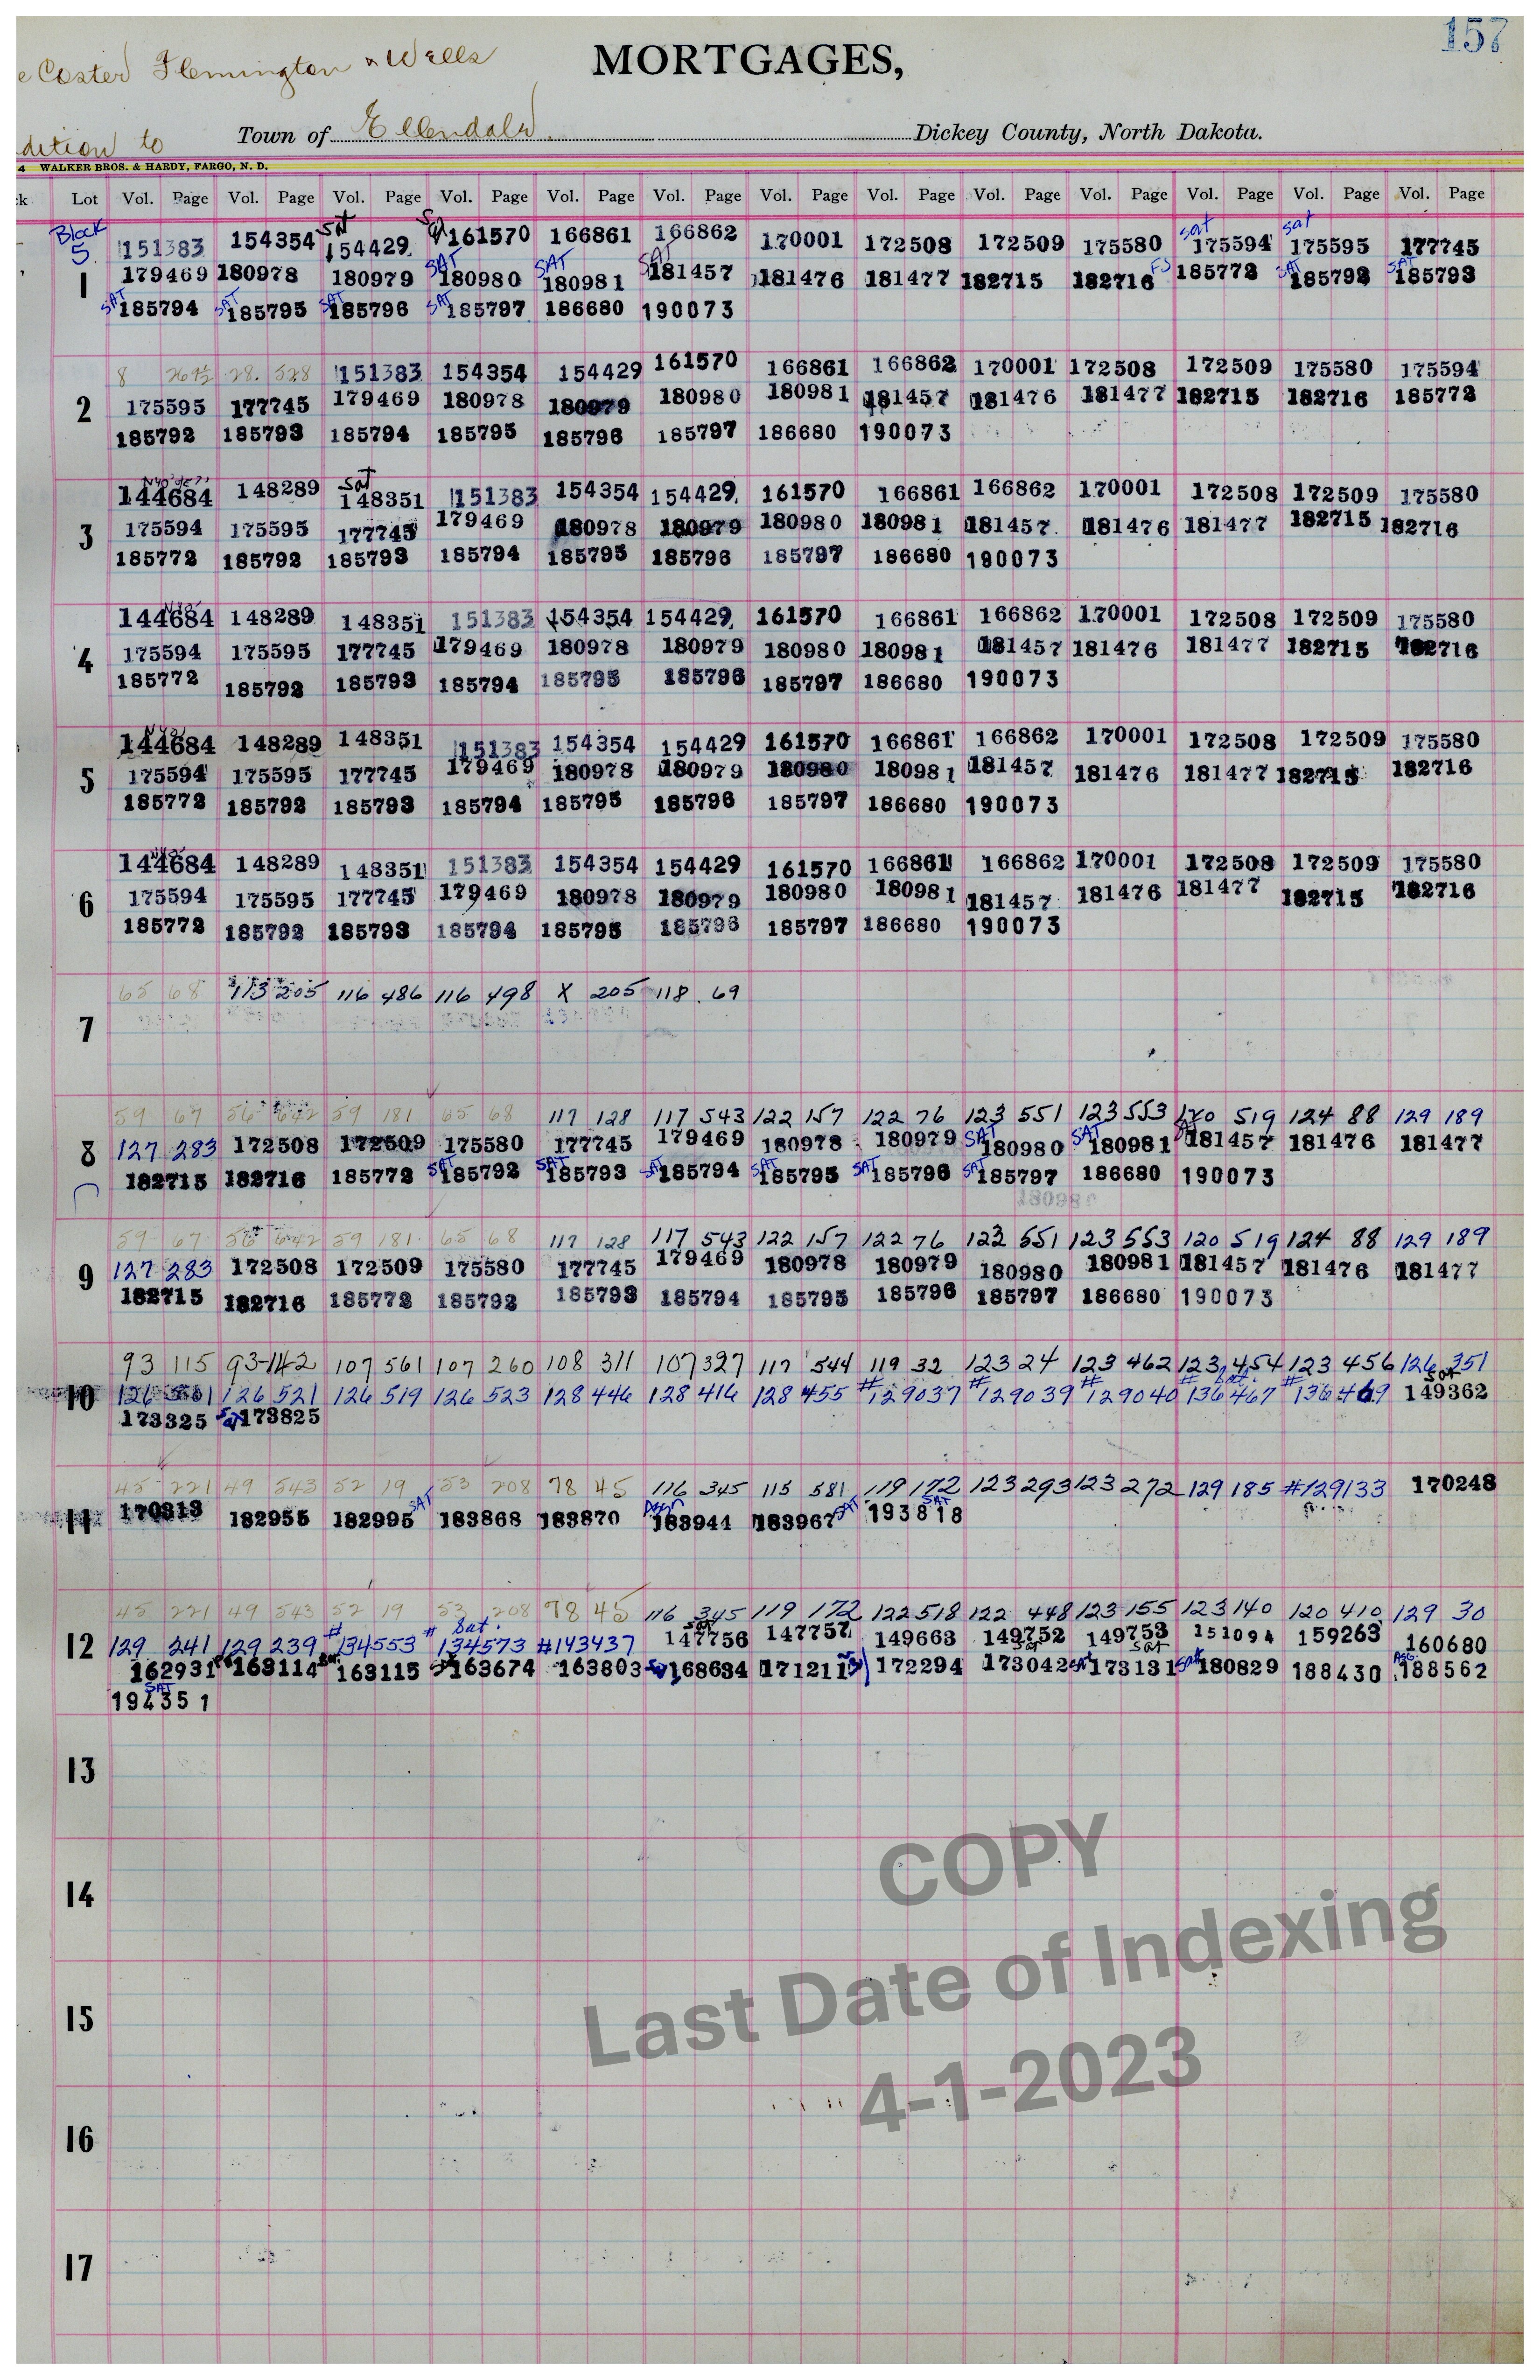 157
e Coster Flemington & Wells
MORTGAGES,
dition to Town of Ellendale Dickey County, North Dakota.
4 WALKER BROS. & HARDY, FARGO, N. D.
k Lot Vol. Page Vol. Page Vol. Page Vol. Page Vol. Page Vol. Page Vol. Page Vol. Page Vol. Page Vol. Page Vol. Page Vol. Page Vol. Page
Block Sat Sat Sat Sat
5 151383 154354 154429 161570 166861 166862 170001 172508 172509 175580 175594 175595 177745
SAT SAT SAT FS SAT SAT
1 179469 180978 180979 180980 180981 181457 181476 181477 182715 182716 185772 185792 185793
SAT SAT SAT SAT
185794 185795 185796 185797 186680 190073
8 28. 528 151383 154354 154429 161570 166861 166862 170001 172508 172509 175580 175594
2 175595 177745 179469 180978 180979 180980 180981 181457 181476 181477 182715 182716 185772
185792 185793 185794 185795 185796 185797 186680 190073
Sat
144684 148289 148351 151383 154354 154429 161570 166861 166862 170001 172508 172509 175580
3 175594 175595 177745 179469 180978 180979 180980 180981 181457 181476 181477 182715 182716
185772 185792 185793 185794 185795 185796 185797 186680 190073
144684 148289 148351 151383 154354 154429 161570 166861 166862 170001 172508 172509 175580
4 175594 175595 177745 179469 180978 180979 180980 180981 181457 181476 181477 182715 182716
185772 185792 185793 185794 185795 185796 185797 186680 190073
144684 148289 148351 151383 154354 154429 161570 166861 166862 170001 172508 172509 175580
5 175594 175595 177745 179469 180978 180979 180980 180981 181457 181476 181477 182715 182716
185772 185792 185793 185794 185795 185796 185797 186680 190073
144684 148289 148351 151383 154354 154429 161570 166861 166862 170001 172508 172509 175580
6 175594 175595 177745 179469 180978 180979 180980 180981 181457 181476 181477 182715 182716
185772 185792 185793 185794 185795 185796 185797 186680 190073
65 68 113 205 116 486 116 498 X 205 118 69
7
59 67 56 642 59 181 65 68 117 128 117 543 122 157 122 76 123 551 123 553 120 519 124 88 129 189
SAT SAT
8 127 283 172508 172509 175580 177745 179469 180978 180979 180980 180981 181457 181476 181477
SAT SAT SAT SAT SAT SAT
182715 182716 185772 185792 185793 185794 185795 185796 185797 186680 190073
180980
59 67 56 642 59 181 65 68 117 128 117 543 122 157 122 76 123 551 123 553 120 519 124 88 129 189
9 127 283 172508 172509 175580 177745 179469 180978 180979 180980 180981 181457 181476 181477
182715 182716 185772 185792 185793 185794 185795 185796 185797 186680 190073
93 115 93-142 107 561 107 260 108 311 107 327 117 544 119 32 123 24 123 462 123 454 123 456 126 351
Sat. Sat
10 126 521 126 519 126 523 128 446 128 416 128 455 #129037 #129039 #129040 #136467 #136469 149362
173325 Sat 173825
45 221 49 543 52 19 53 208 78 45 116 345 115 581 119 172 123 293 123 272 129 185 #129133 170248
SAT Asgn SAT SAT
11 170313 182955 182995 183868 183870 183944 183967 193818
45 221 49 543 52 19 53 208 78 45 116 345 119 172 122 518 122 448 123 155 123 140 120 410 129 30
Sat. Sat
12 129 241 129 239 #134553 #134573 #143437 147756 147757 149663 149752 149753 151094 159263 160680
Sat Sat Sat Sat ASG.
162931 163114 163115 163674 163803 168634 171211 172294 173042 173131 180829 188430 188562
SAT
194351
13
14
15
16
17
COPY
Last Date of Indexing
4-1-2023